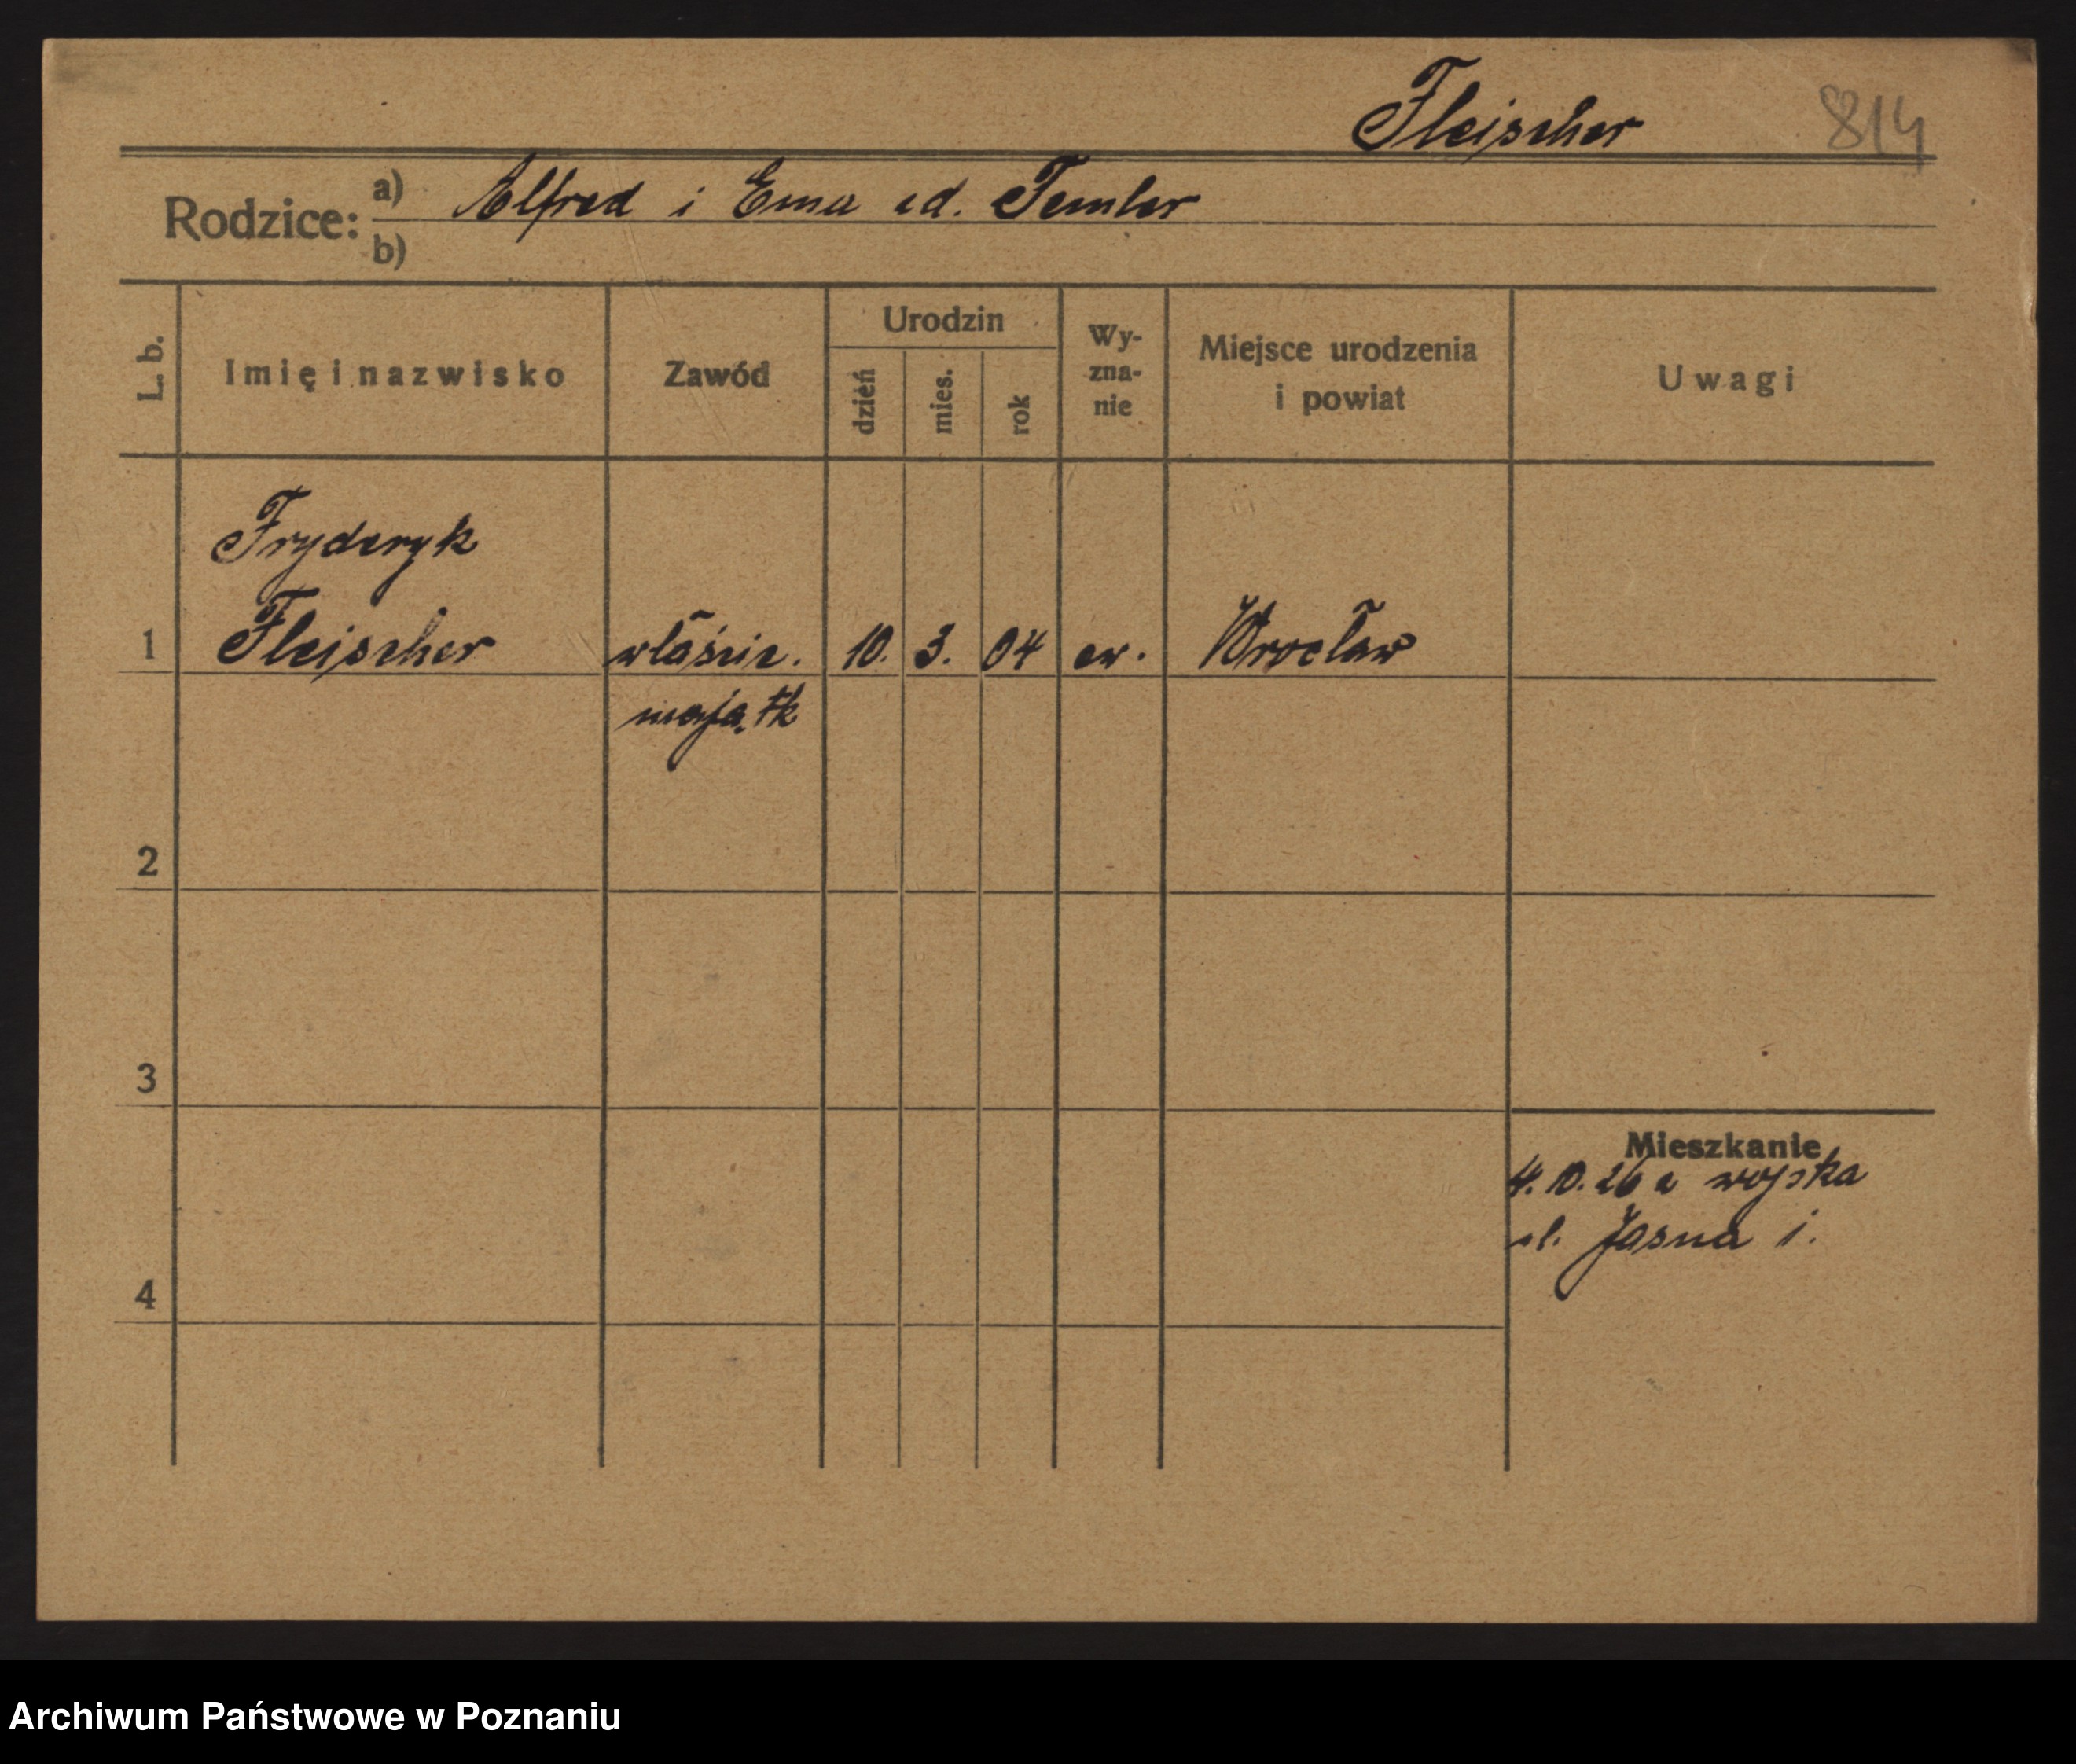 Fleischer 814
Rodzice: a) Alfred i Ema zd. Temler
b)
L. b.
Imię i nazwisko
Zawód
Urodzin
dzień
mies.
rok
Wy-
zna-
nie
Miejsce urodzenia
i powiat
Uwagi
Fryderyk
1 Fleischer właścic. 10. 3. 04 ew. Wrocław
majątk
2
3
Mieszkanie
4. 10. 26 z wojska
ul. Jasna 1.
4
Archiwum Państwowe w Poznaniu